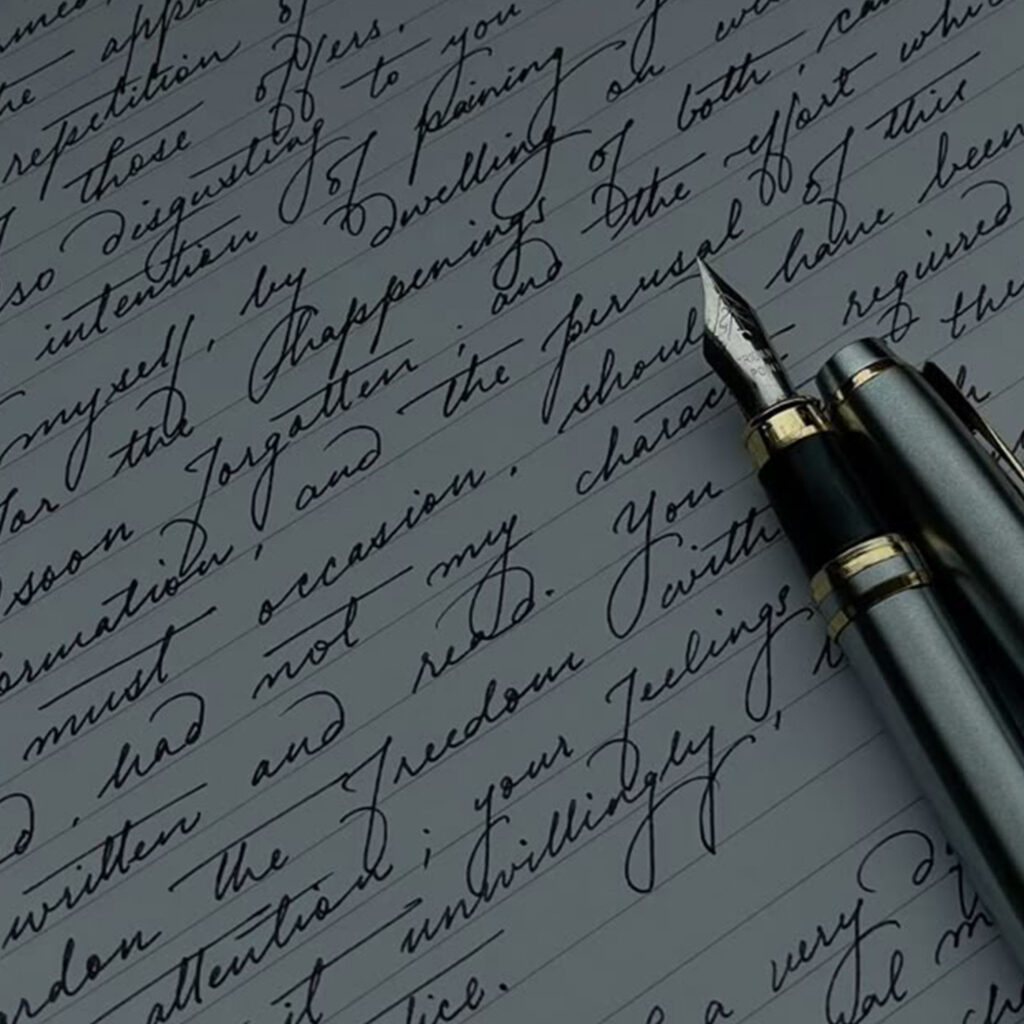 the appr
repetition of
those offers.
so disgusting to you
intention of paining
myself, by dwelling on
for the happenings of both, can
soon forgotten; and the effort whic
ormation, and the perusal of this
must occasion. should have been
d, had not my charac required
written and read. You to the
rdon the freedom with
attention; your feelings
it unwillingly,
tice.
a very